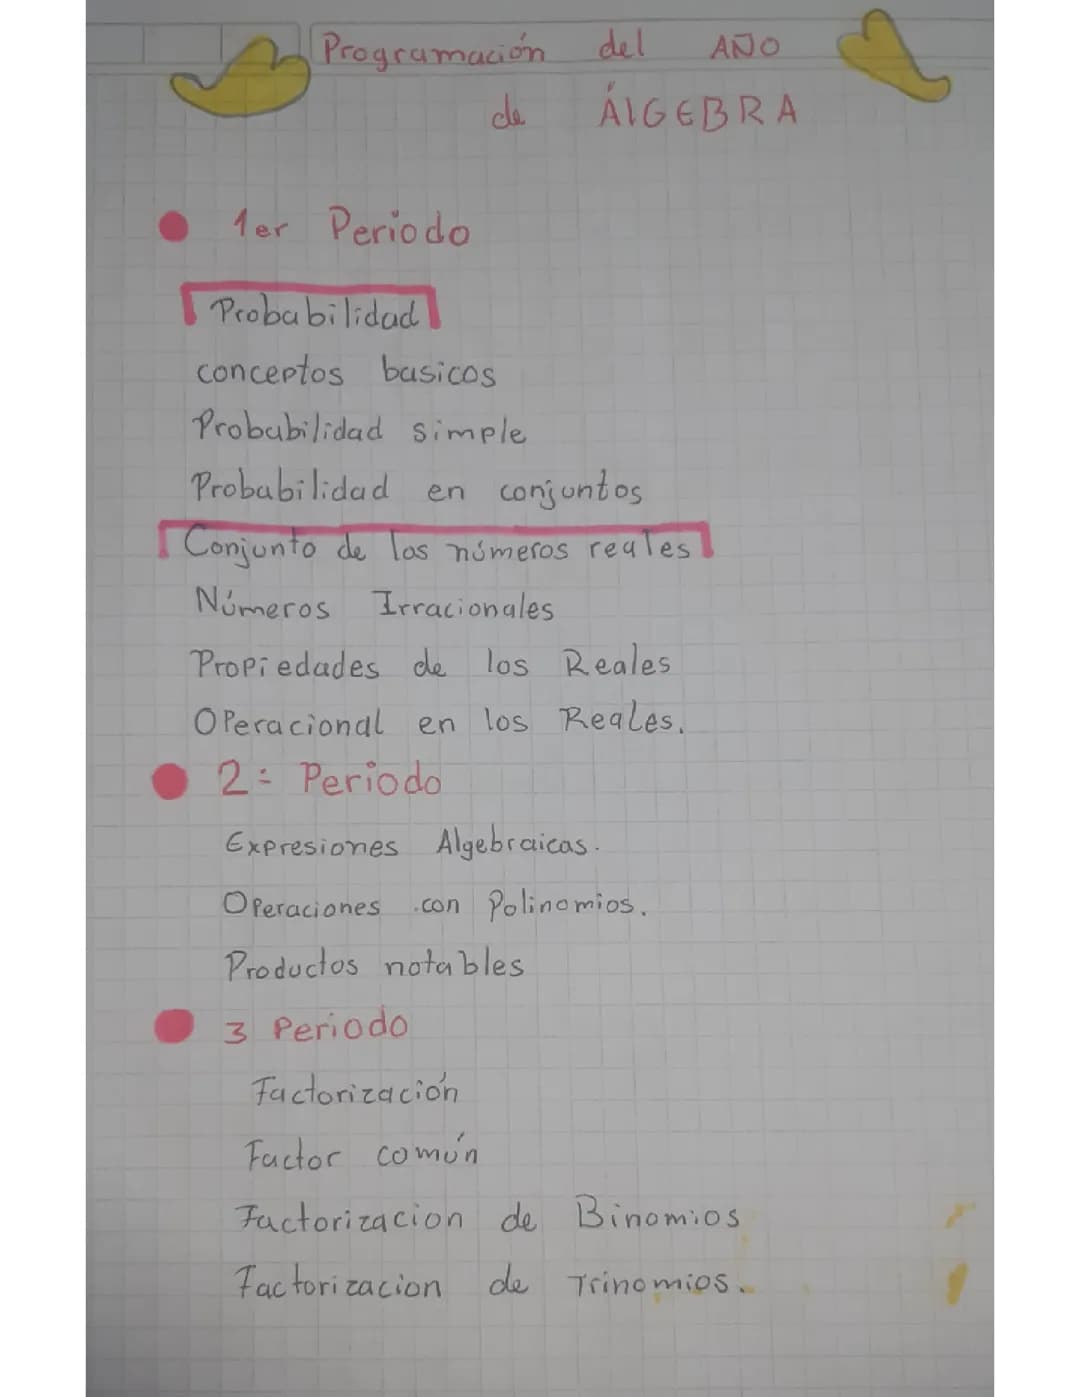 Programación del AÑO
de ÁlGEBRA
1er Periodo
Probabilidad
conceptos basicos
Probabilidad simple
Probabilidad en conjuntos
Conjunto de los números reales
Números Irracionales
Propiedades de los Reales
Operacional en los Reales.
2= Periodo
Expresiones Algebraicas.
Operaciones con Polinomios.
Productos notables
3 Periodo
Factorización
Factor común
Factorizacion de Binomios
Factorizacion de Trinomios.